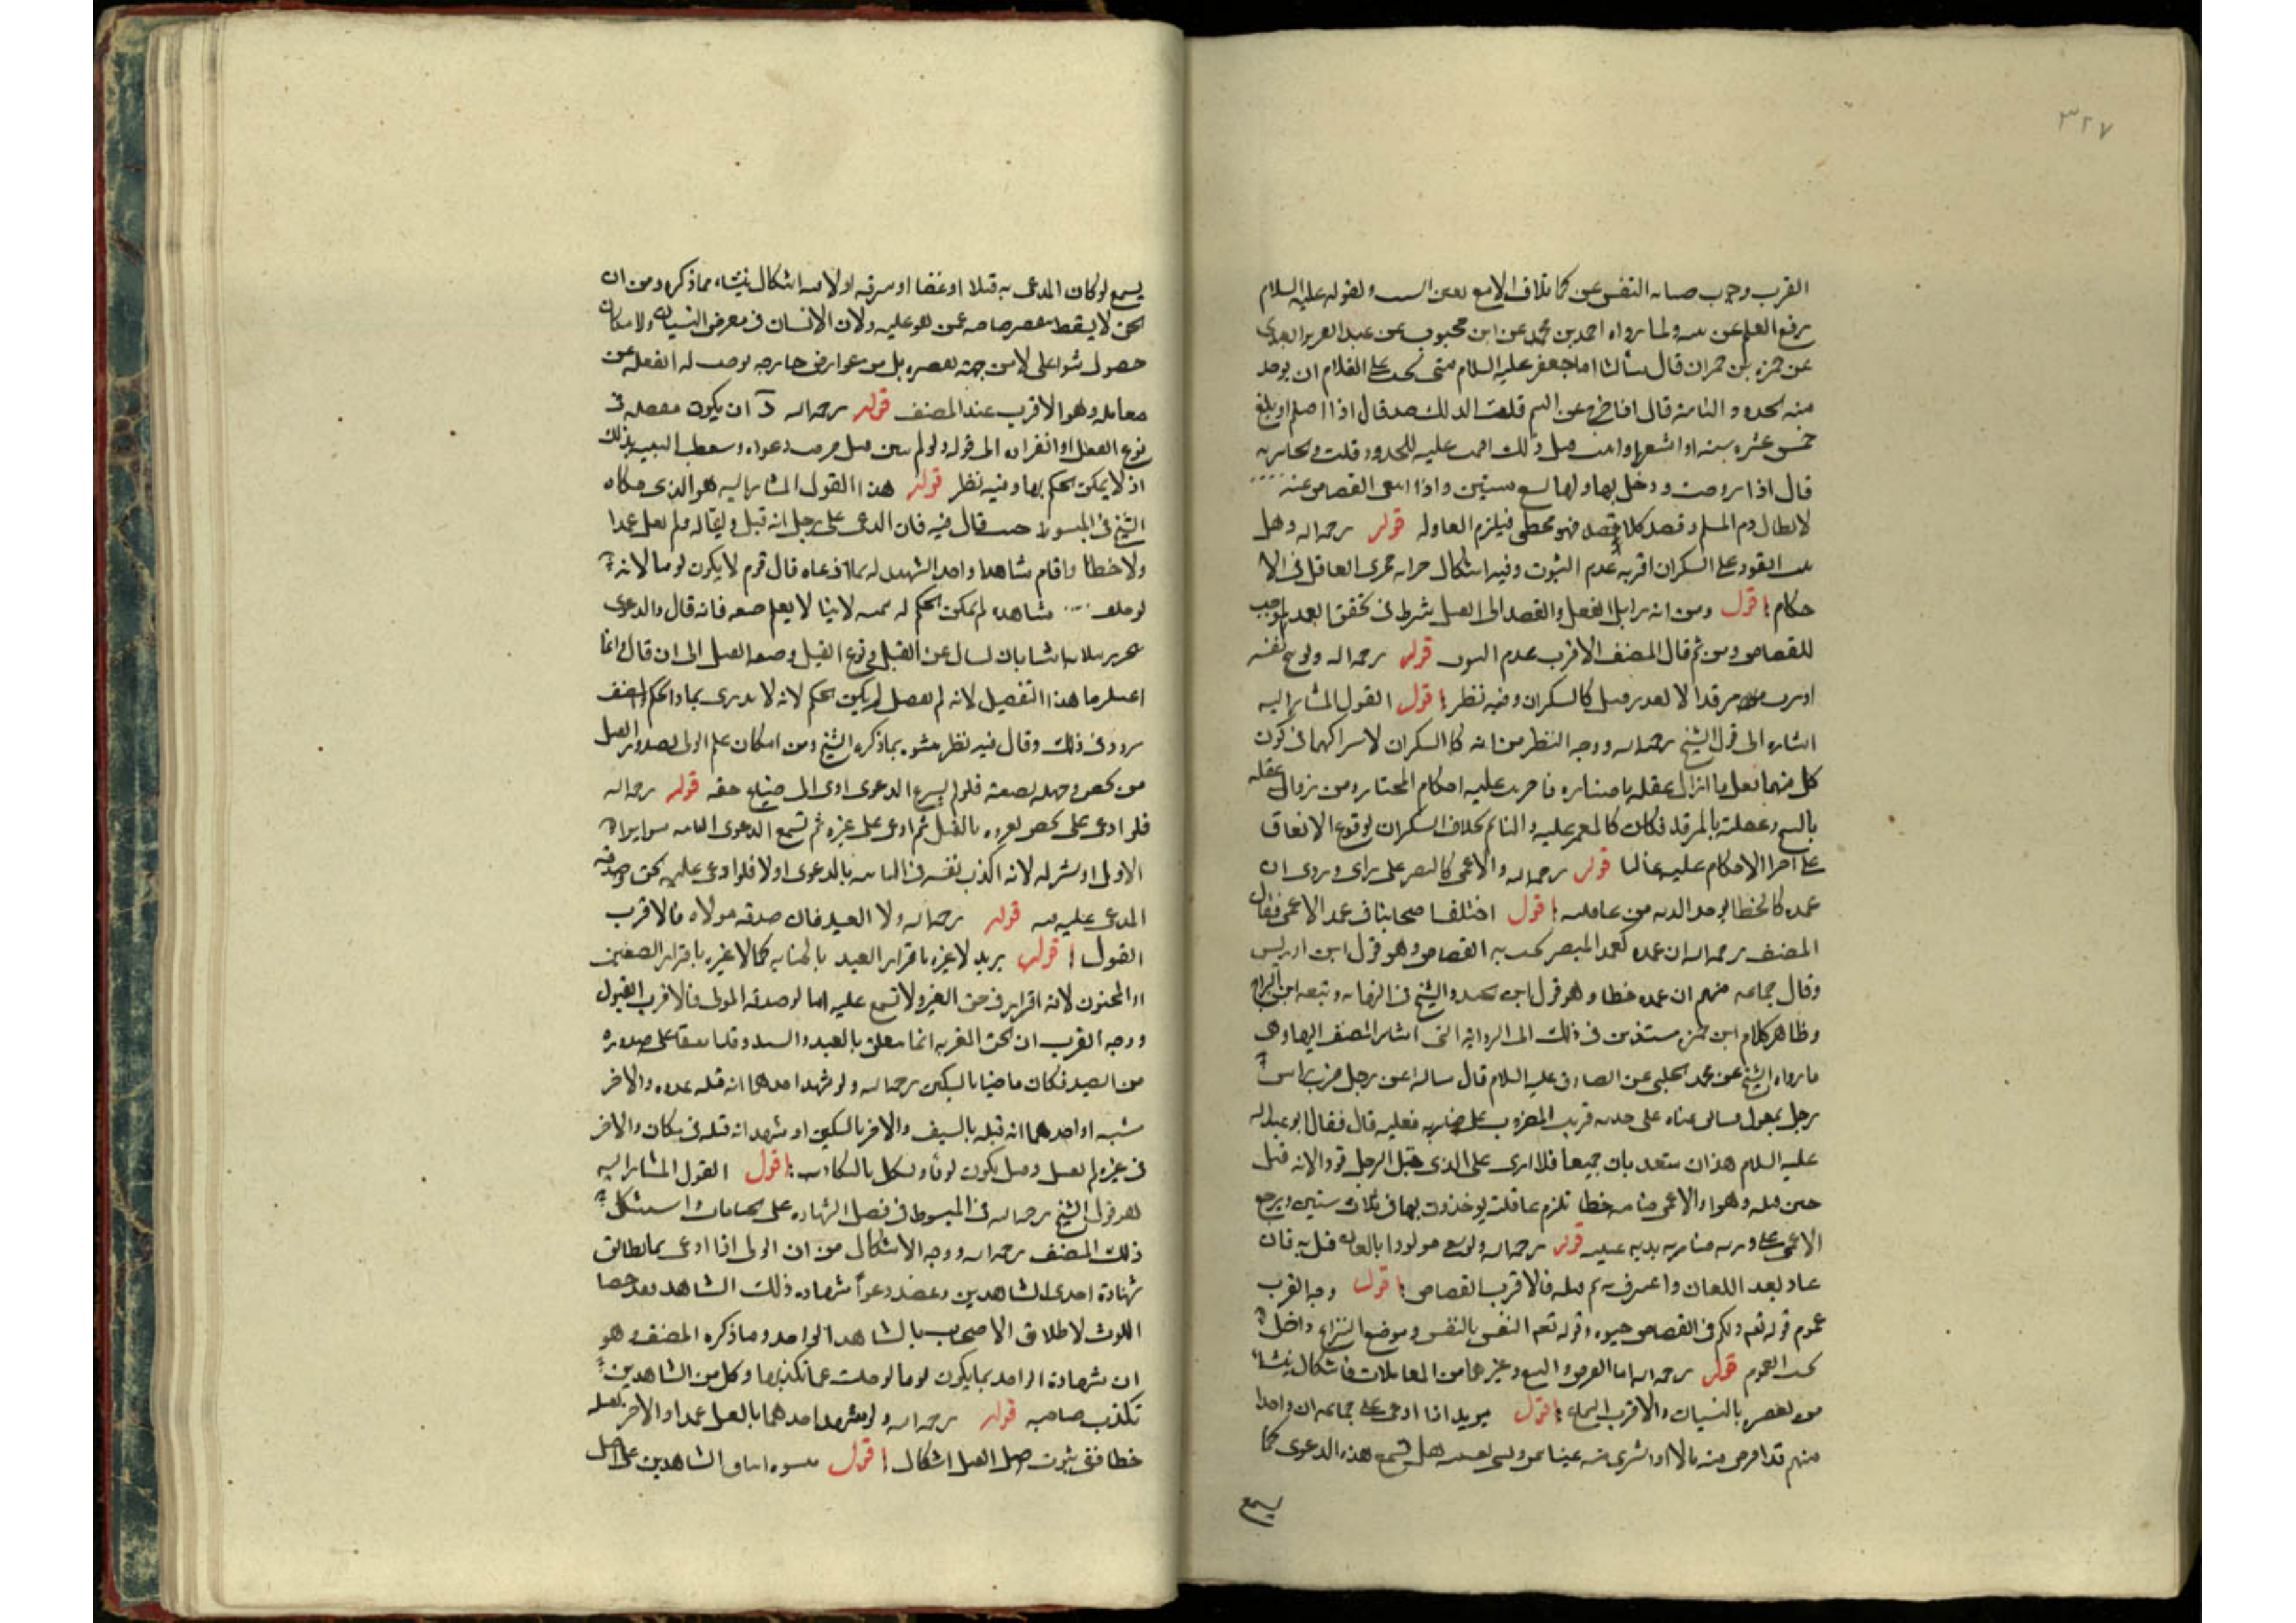 ٣٢٧
القرب وجوب صيانة النفس عن كما تلاف الامع ولقوله عليه السلام
رفع القلم عن ولما رواه احمد بن محمد عن ابن محبوب عن عبد العزيز العبدى
عن حمزه بن حمران قال سألت ابا جعفر عليه السلام متى يجب على الغلام ان يوخذ
منه الحدود التامة قال اذا خرج عن اليتم قلت لذلك حد قال اذا احتلم او بلغ
خمس عشره سنه او اشعر او انبت قبل ذلك اقيمت عليه الحدود قلت والجاريه
قال اذا تزوجت ودخل بها ولها تسع سنين واذا القصاص عنه
لا بطال دم المسلم قصد فهو مخطى فيلزم العاقله قوله رحمه الله وهل
يثبت القود على السكران اقربه عدم الثبوت وفيه اشكال اجرائه مجرى العاقل فى الا
حكام اقول ومن ان الفعل والقصد الى القتل شرط فى تحقق العمد الموجب
للقصاص ومن ثم قال المصنف الاقرب عدم الثبوت قوله رحمه الله ولو بنج نفسه
او شرب مرقدا لا لعذر قيل كالسكران وفيه نظر اقول القول المشار اليه
اشاره الى قول الشيخ رحمه الله ووجه النظر من انه كالسكران لاشتراكهما فى كون
كل منهما فعل ما ازال عقله باختياره فاجريت عليه احكام المختار ومن زوال عقله
بالبنج وغفلته بالمرقد فكان كالمغمى عليه والنائم بخلاف السكران لوقوع الاتفاق
على اجرا الاحكام عليه غالبا قوله رحمه الله والاعمى كالمبصر على راى وروى ان
عمده كالخطا يوخذ الديه من عاقلته اقول اختلف اصحابنا فى عمد الاعمى فقال
المصنف رحمه الله ان عمده كعمد المبصر يجب به القصاص وهو قول ابن ادريس
وقال جماعه منهم ان عمده خطا وهو قول ابن الجنيد والشيخ فى النهايه وتبعه ابن البراج
وظاهر كلام ابن حمزه مستندين فى ذلك الى الروايه التى اشار المصنف اليها وهى
ما رواه الشيخ عن محمد الحلبى عن الصادق عليه السلام قال سالته عن رجل ضرب راس
رجل بمعول فسالت عيناه على خديه فوثب المضروب على ضاربه فقتله قال فقال ابو عبد الله
عليه السلم هذان متعديان جميعا فلا ارى على الذى قتل الرجل قودا لانه قتل
حين قتله وهو اعمى والاعمى جنايته خطا تلزم عاقلته يوخذون بها فى ثلاث سنين ويرجع
الاعمى على ورثه ضاربه بديه عينيه قوله رحمه الله ولو نفى مولودا باللعان قتل به فان
عاد بعد اللعان واعترف به ثم قتله فالاقرب القصاص اقول وجه القرب
عموم قوله تعم ولكم فى القصاص حيوه وقوله تعم النفس بالنفس وموضع النزاع داخل
تحت العموم قوله رحمه الله اما القرض والبيع وغيرهما من المعاملات فاشكال ينشا
من تقصيره بالنسيان والاقرب السماع اقول يريد اذا ادعى على جماعه ان واحدا
منهم قد اقرض منه مالا او اشترى منه عينا ونسى تعيينه هل تسمع هذه الدعوى كما
يسمع
يسمع لو كان المدعى به قتلا او غصبا او سرقه او لا فيه اشكال ينشا مما ذكره ومن ان
الحق لا يسقط عمن هو عليه ولان الانسان فى معرض النسيان ولا مكان
حصول لا من جهة تقصيره بل من عوارض خارجه
معامله وهو الاقرب عند المصنف قوله رحمه الله د ان يكون مفصله فى
نوع القتل او انفراده الى قوله ولو لم يبين قيل طرحت دعواه وسقطت البينه بذلك
اذ لا يمكن الحكم بها وفيه نظر قوله هذا القول المشار اليه هو الذى حكاه
الشيخ فى المبسوط حيث قال فيه فان ادعى على رجل انه قتل وليا له ولم يقل عمدا
ولا خطأ واقام شاهدا واحدا يشهد له بما ادعاه قال قوم لا يكون لوثا لانه
لو حلف مع شاهده لم يمكن الحكم له بيمينه لانا لا نعلم صفته فانه قال والدعوى
محرره بثلاثه اشيا بان يسال عن القتل ونوع القتل وصفة القتل الى ان قال وانما
اعتبرنا هذا التفصيل لانه لم يفصل لم يمكن الحكم لانه لا يدرى بماذا يحكم والمصنف
تردد فى ذلك وقال فيه نظر بما ذكره الشيخ ومن امكان علم الولى بصدور القتل
من شخص وجهله بصفته فلو لم تسمع الدعوى ادى الى ضياع حقه قوله رحمه الله
فلو ادعى على شخص تفرده بالقتل ثم ادعى على غيره لم تسمع الدعوى الثانيه سوا ابرا
الاول او شركه لانه اكذب نفسه فى الثانيه بالدعوى اولا فلو ادعى عليه بحق وصدقه
المدعى عليه قوله رحمه الله ولا العبد فان صدقه مولاه فالاقرب
القبول اقول يريد لا عبره باقرار العبد بالجنايه كما لا عبره باقرار الصغير
او المجنون لانه اقرار فى حق الغير ولا تسمع عليه اما لو صدقه المولى فالاقرب القبول
ووجه القرب ان الحق المقر به انما يتعلق بالعبد والسيد وقد اتفقا على صدوره
من العبد فكان ماضيا بالسكين رحمه الله ولو شهد احدهما انه قتله غدوه والاخر
عشيه او احدهما انه قتله بالسيف والاخر بالسكين او شهد انه قتله فى مكان والاخر
فى غيره لم يقبل وقيل يكون لوثا ويشكل بالتكاذب اقول القول المشار اليه
هو قول الشيخ رحمه الله فى المبسوط فى فصل الشهاده على الجنايات واستشكل
ذلك المصنف رحمه الله ووجه الاشكال من ان الولى اذا ادعى بما يطابق
شهادة احدى الشاهدين وعضد دعواه شهاده ذلك الشاهد
اللوث لاطلاق الاصحاب بالشاهد الواحد وما ذكره المصنف وهو
ان شهادة الواحد انما يكون لوثا لو خلت عما تكذبها وكل من الشاهدين
تكذب صاحبه قوله رحمه الله ولو شهد احدهما بالقتل عمدا والاخر بقتله
خطا ففى ثبوت اصل القتل اشكال اقول الشاهدين على اصل